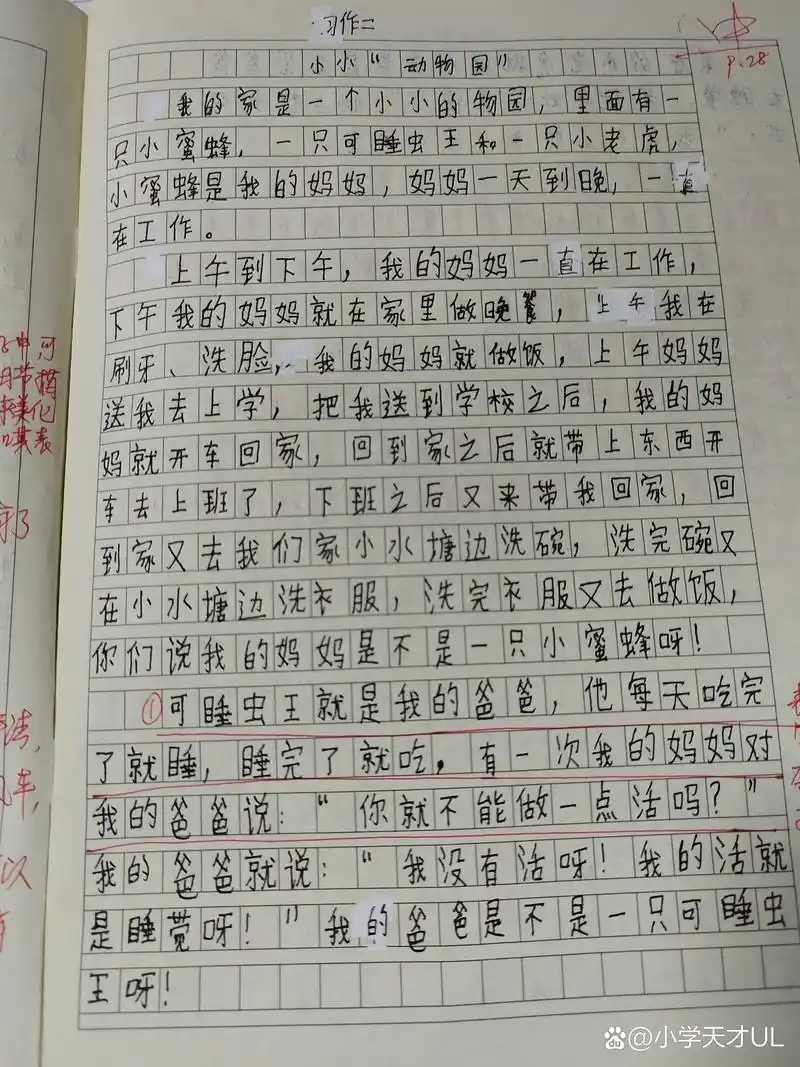 习作二
小小“动物园”
P.28
我的家是一个小小的物园，里面有一
只小蜜蜂，一只可睡虫王和一只小老虎，
小蜜蜂是我的妈妈，妈妈一天到晚，一直
在工作。
上午到下午，我的妈妈一直在工作，
下午我的妈妈就在家里做晚餐，上午我在
刷牙、洗脸，我的妈妈就做饭，上午妈妈
送我去上学，把我送到学校之后，我的妈
妈就开车回家，回到家之后就带上东西开
车去上班了，下班之后又来带我回家，回
到家又去我们家小水塘边洗碗，洗完碗又
在小水塘边洗衣服，洗完衣服又去做饭，
你们说我的妈妈是不是一只小蜜蜂呀！
①可睡虫王就是我的爸爸，他每天吃完
了就睡，睡完了就吃，有一次我的妈妈对
我的爸爸说：“你就不能做一点活吗？”
我的爸爸就说：“我没有活呀！我的活就
是睡觉呀！”我的爸爸是不是一只可睡虫
王呀！
@小学天才UL